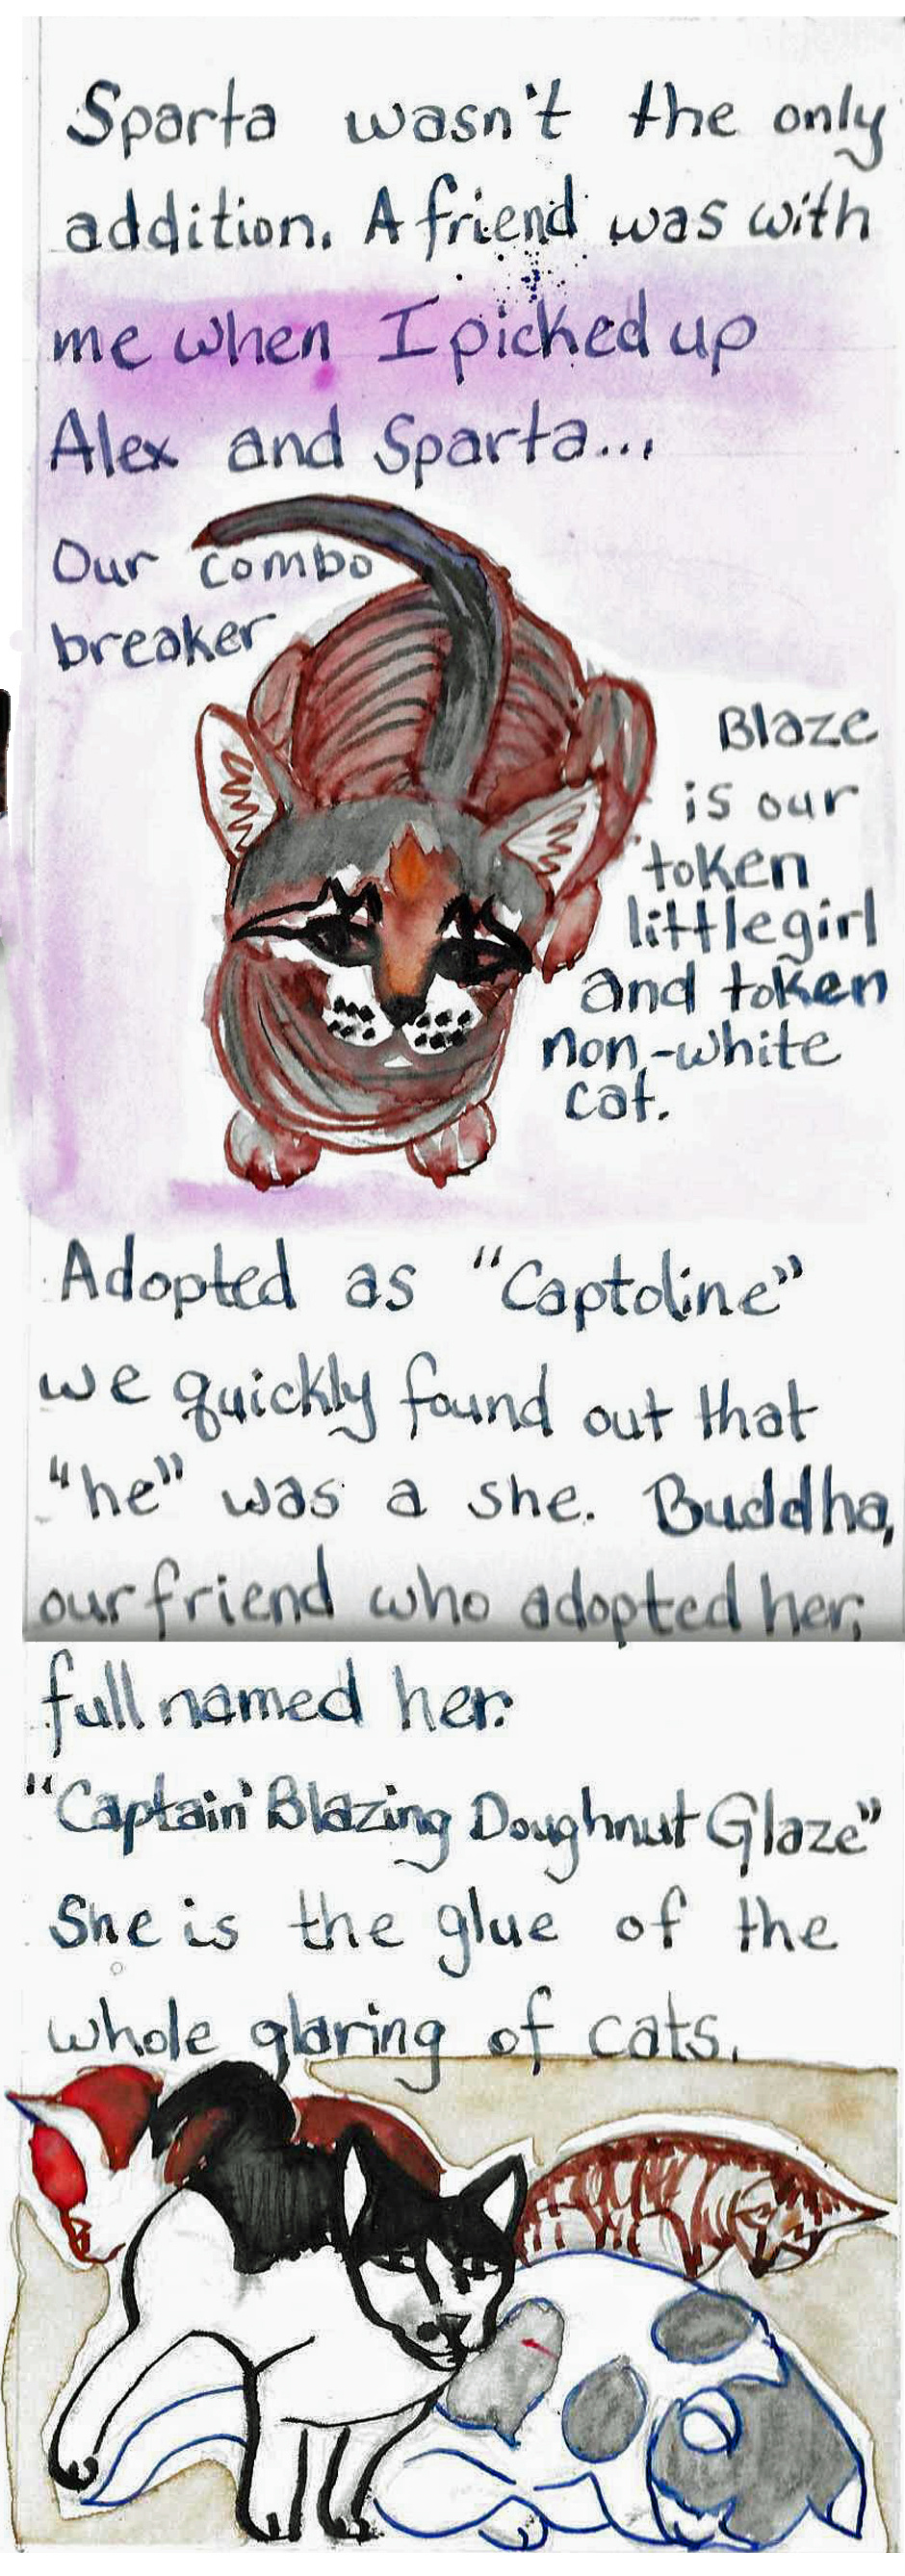 Sparta wasn't the only
addition. A friend was with
me when I picked up
Alex and Sparta...
Our combo
breaker
Blaze
is our
token
little girl
and token
non-white
cat.
Adopted as "Captoline"
we quickly found out that
"he" was a she. Buddha,
our friend who adopted her,
full named her:
"Captain Blazing Doughnut Glaze"
She is the glue of the
whole glaring of cats.